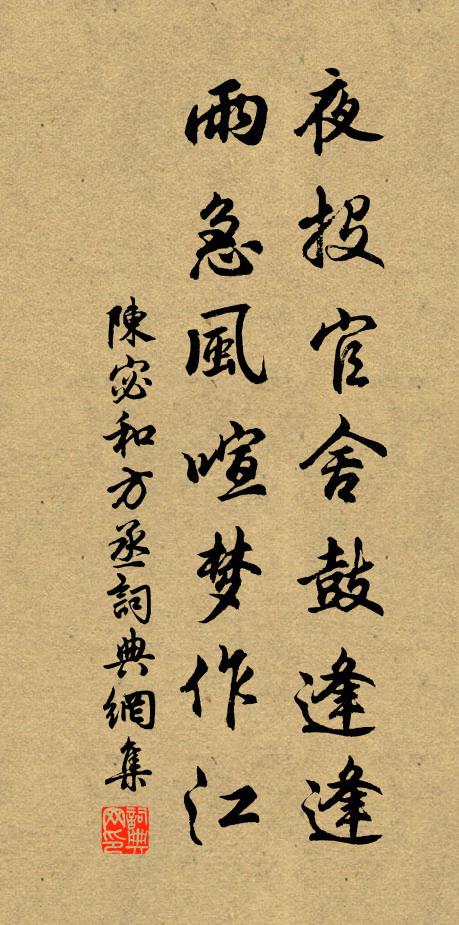 夜投官舍鼓逢逢
雨急風喧梦作江
陳宓和方丞詞典網集
詞典网印